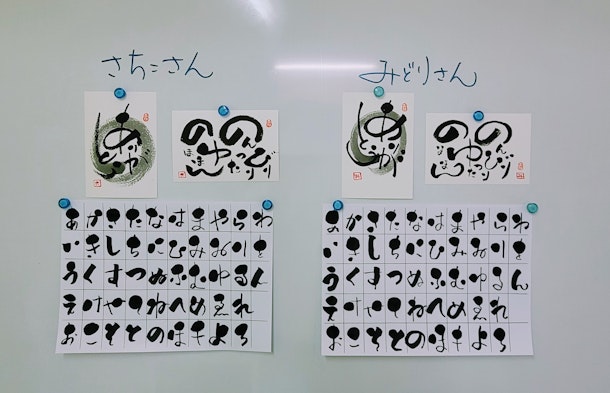 さちこさん
ありがとう
のんびり
ゆったり
のほほん
あかさたなはまやらわ
いきしちにひみゐりを
うくすつぬふむゆるん
えけせてねへめゑれ
おこそとのほもよろ
みどりさん
ありがとう
のんびり
ゆったり
のほほん
あかさたなはまやらわ
いきしちにひみゐりを
うくすつぬふむゆるん
えけせてねへめゑれ
おこそとのほもよろ